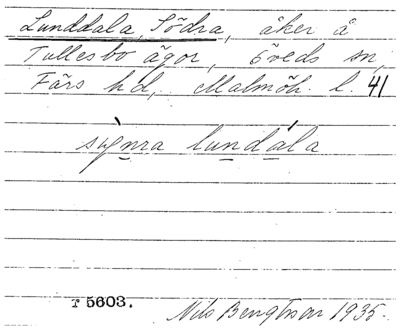 Lunddala, Södra, åker å
Tullesbo ägor, Öveds sn,
Färs hd, Malmöh. l. 41
sỳnra lundála
T 5603. Nils Bengtsson 1935.